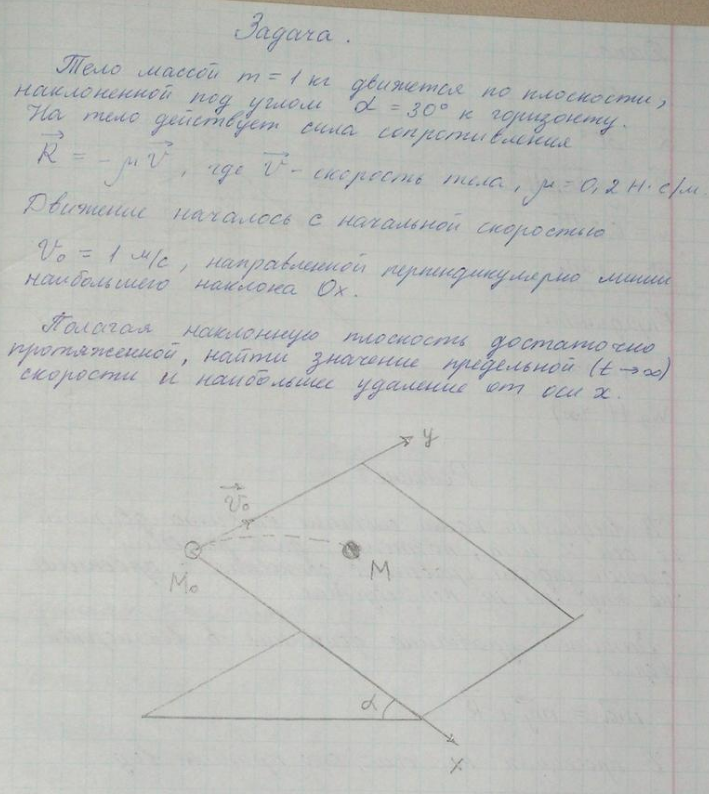 Задача.
Тело массой m = 1 кг движется по плоскости,
наклоненной под углом α = 30° к горизонту.
На тело действует сила сопротивления
R⃗ = -μV⃗, где V⃗ - скорость тела, μ = 0,2 Н·с/м.
Движение началось с начальной скоростью
V₀ = 1 м/с, направленной перпендикулярно линии
наибольшего наклона Ox.
Полагая наклонную плоскость достаточно
протяженной, найти значение предельной (t→∞)
скорости и наибольшее удаление от оси x.
y
V⃗₀
M₀
M
α
x